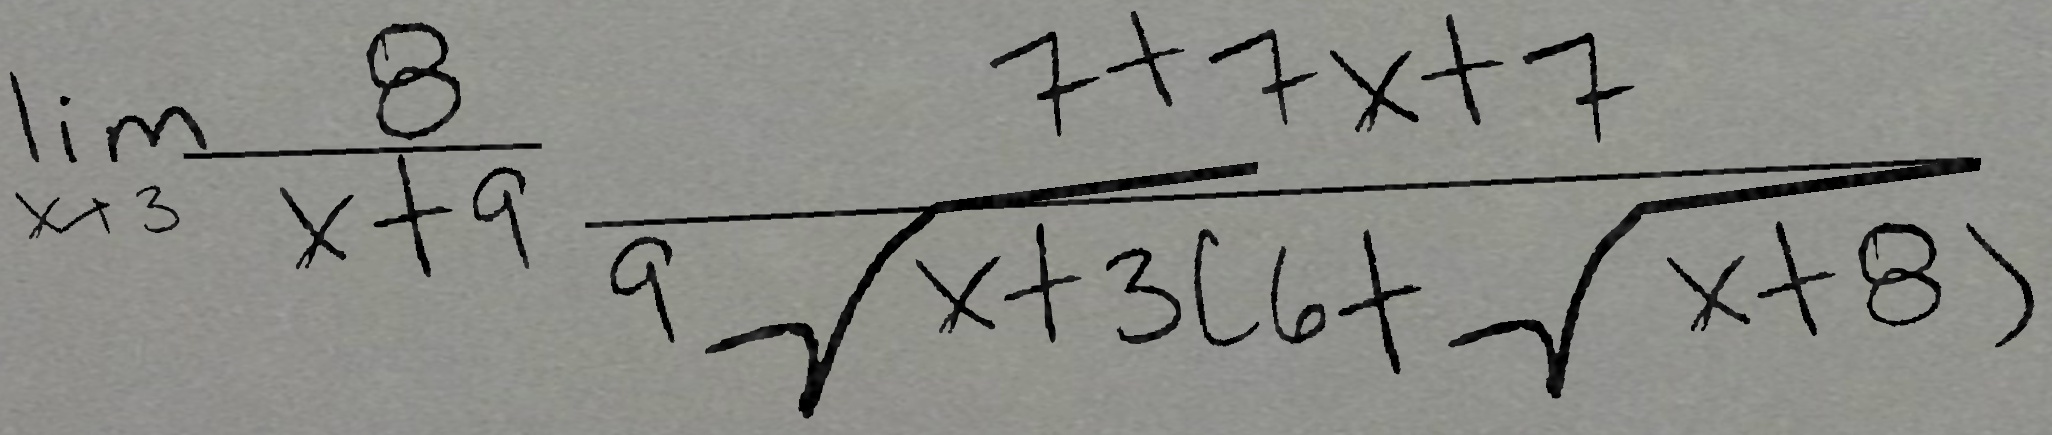 \lim_{x+3} \frac{8}{x+9} \frac{7+7x+7}{9\sqrt{x+3}(6+\sqrt{x+8})}